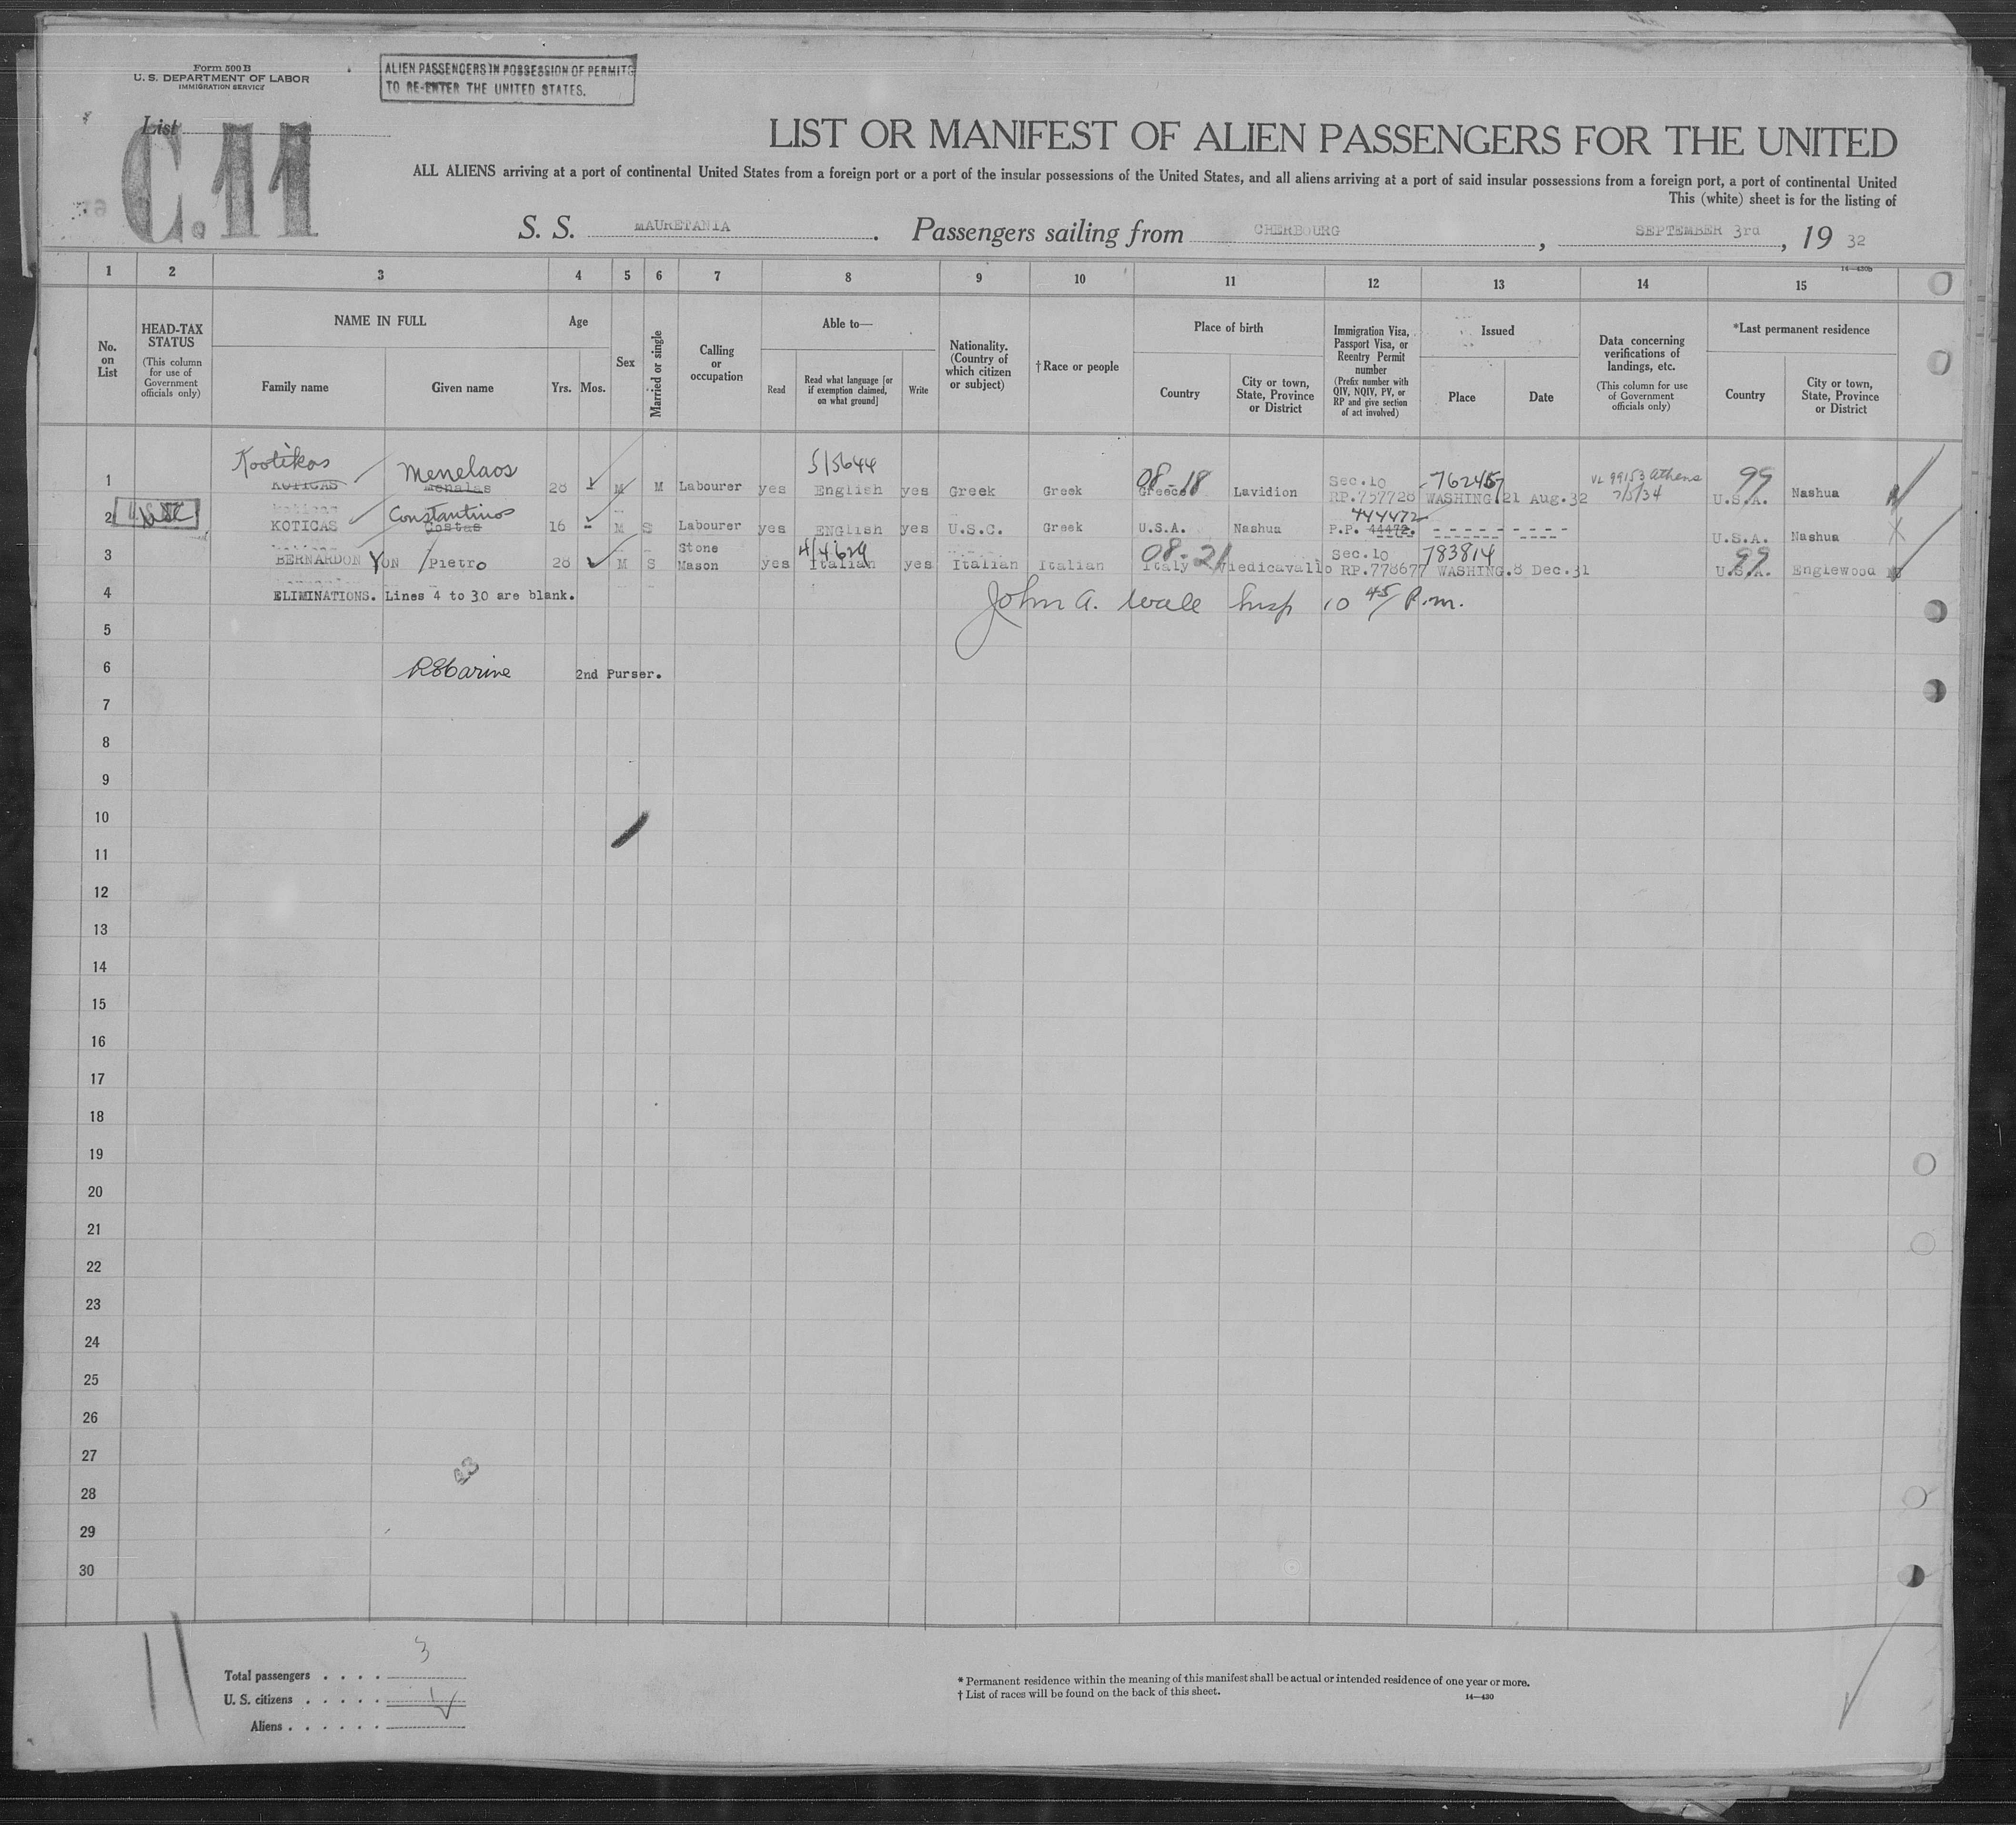 Form 500 B
U. S. DEPARTMENT OF LABOR
IMMIGRATION SERVICE
ALIEN PASSENGERS IN POSSESSION OF PERMITS
TO RE-ENTER THE UNITED STATES.
List
C.11
LIST OR MANIFEST OF ALIEN PASSENGERS FOR THE UNITED
ALL ALIENS arriving at a port of continental United States from a foreign port or a port of the insular possessions of the United States, and all aliens arriving at a port of said insular possessions from a foreign port, a port of continental United
This (white) sheet is for the listing of
S. S. MAURETANIA. Passengers sailing from CHERBOURG, SEPTEMBER 3rd, 19 32
14—430b
1 2 3 4 5 6 7 8 9 10 11 12 13 14 15
No. on List
HEAD-TAX STATUS
(This column for use of Government officials only)
NAME IN FULL
Family name
Given name
Age
Yrs. Mos.
Sex
Married or single
Calling or occupation
Able to—
Read
Read what language [or if exemption claimed, on what ground]
Write
Nationality. (Country of which citizen or subject)
† Race or people
Place of birth
Country
City or town, State, Province or District
Immigration Visa, Passport Visa, or Reentry Permit number
(Prefix number with QIV, NQIV, PV, or RP and give section of act involved)
Issued
Place
Date
Data concerning verifications of landings, etc.
(This column for use of Government officials only)
*Last permanent residence
Country
City or town, State, Province or District
Kootikas Menelaos 515644 08-18 Sec.10 762457 VL 99153 Athens 99
1 KOTICAS Menalas 28 - M M Labourer yes English yes Greek Greek Greece Lavidion RP.757728 WASHING. 21 Aug.32 7/5/34 U.S.A. Nashua
Constantinos 444472
2 KOTICAS Costas 16 - M S Labourer yes ENGlish yes U.S.C. Greek U.S.A. Nashua P.P. 44472. U.S.A. Nashua
Stone 414629 08-21 Sec.10 783814 99
3 BERNARDON YON Pietro 28 M S Mason yes Italian yes Italian Italian Italy Viedicavallo RP.778677 WASHING. 8 Dec.31 U.S.A. Englewood
4 ELIMINATIONS. Lines 4 to 30 are blank. John A. Insp 10 45/ P.m.
5
6 2nd Purser.
7
8
9
10
11
12
13
14
15
16
17
18
19
20
21
22
23
24
25
26
27
28
29
30
11
Total passengers . . . . 3
U. S. citizens . . . . . 1
Aliens . . . . . .
* Permanent residence within the meaning of this manifest shall be actual or intended residence of one year or more.
† List of races will be found on the back of this sheet.
14—430